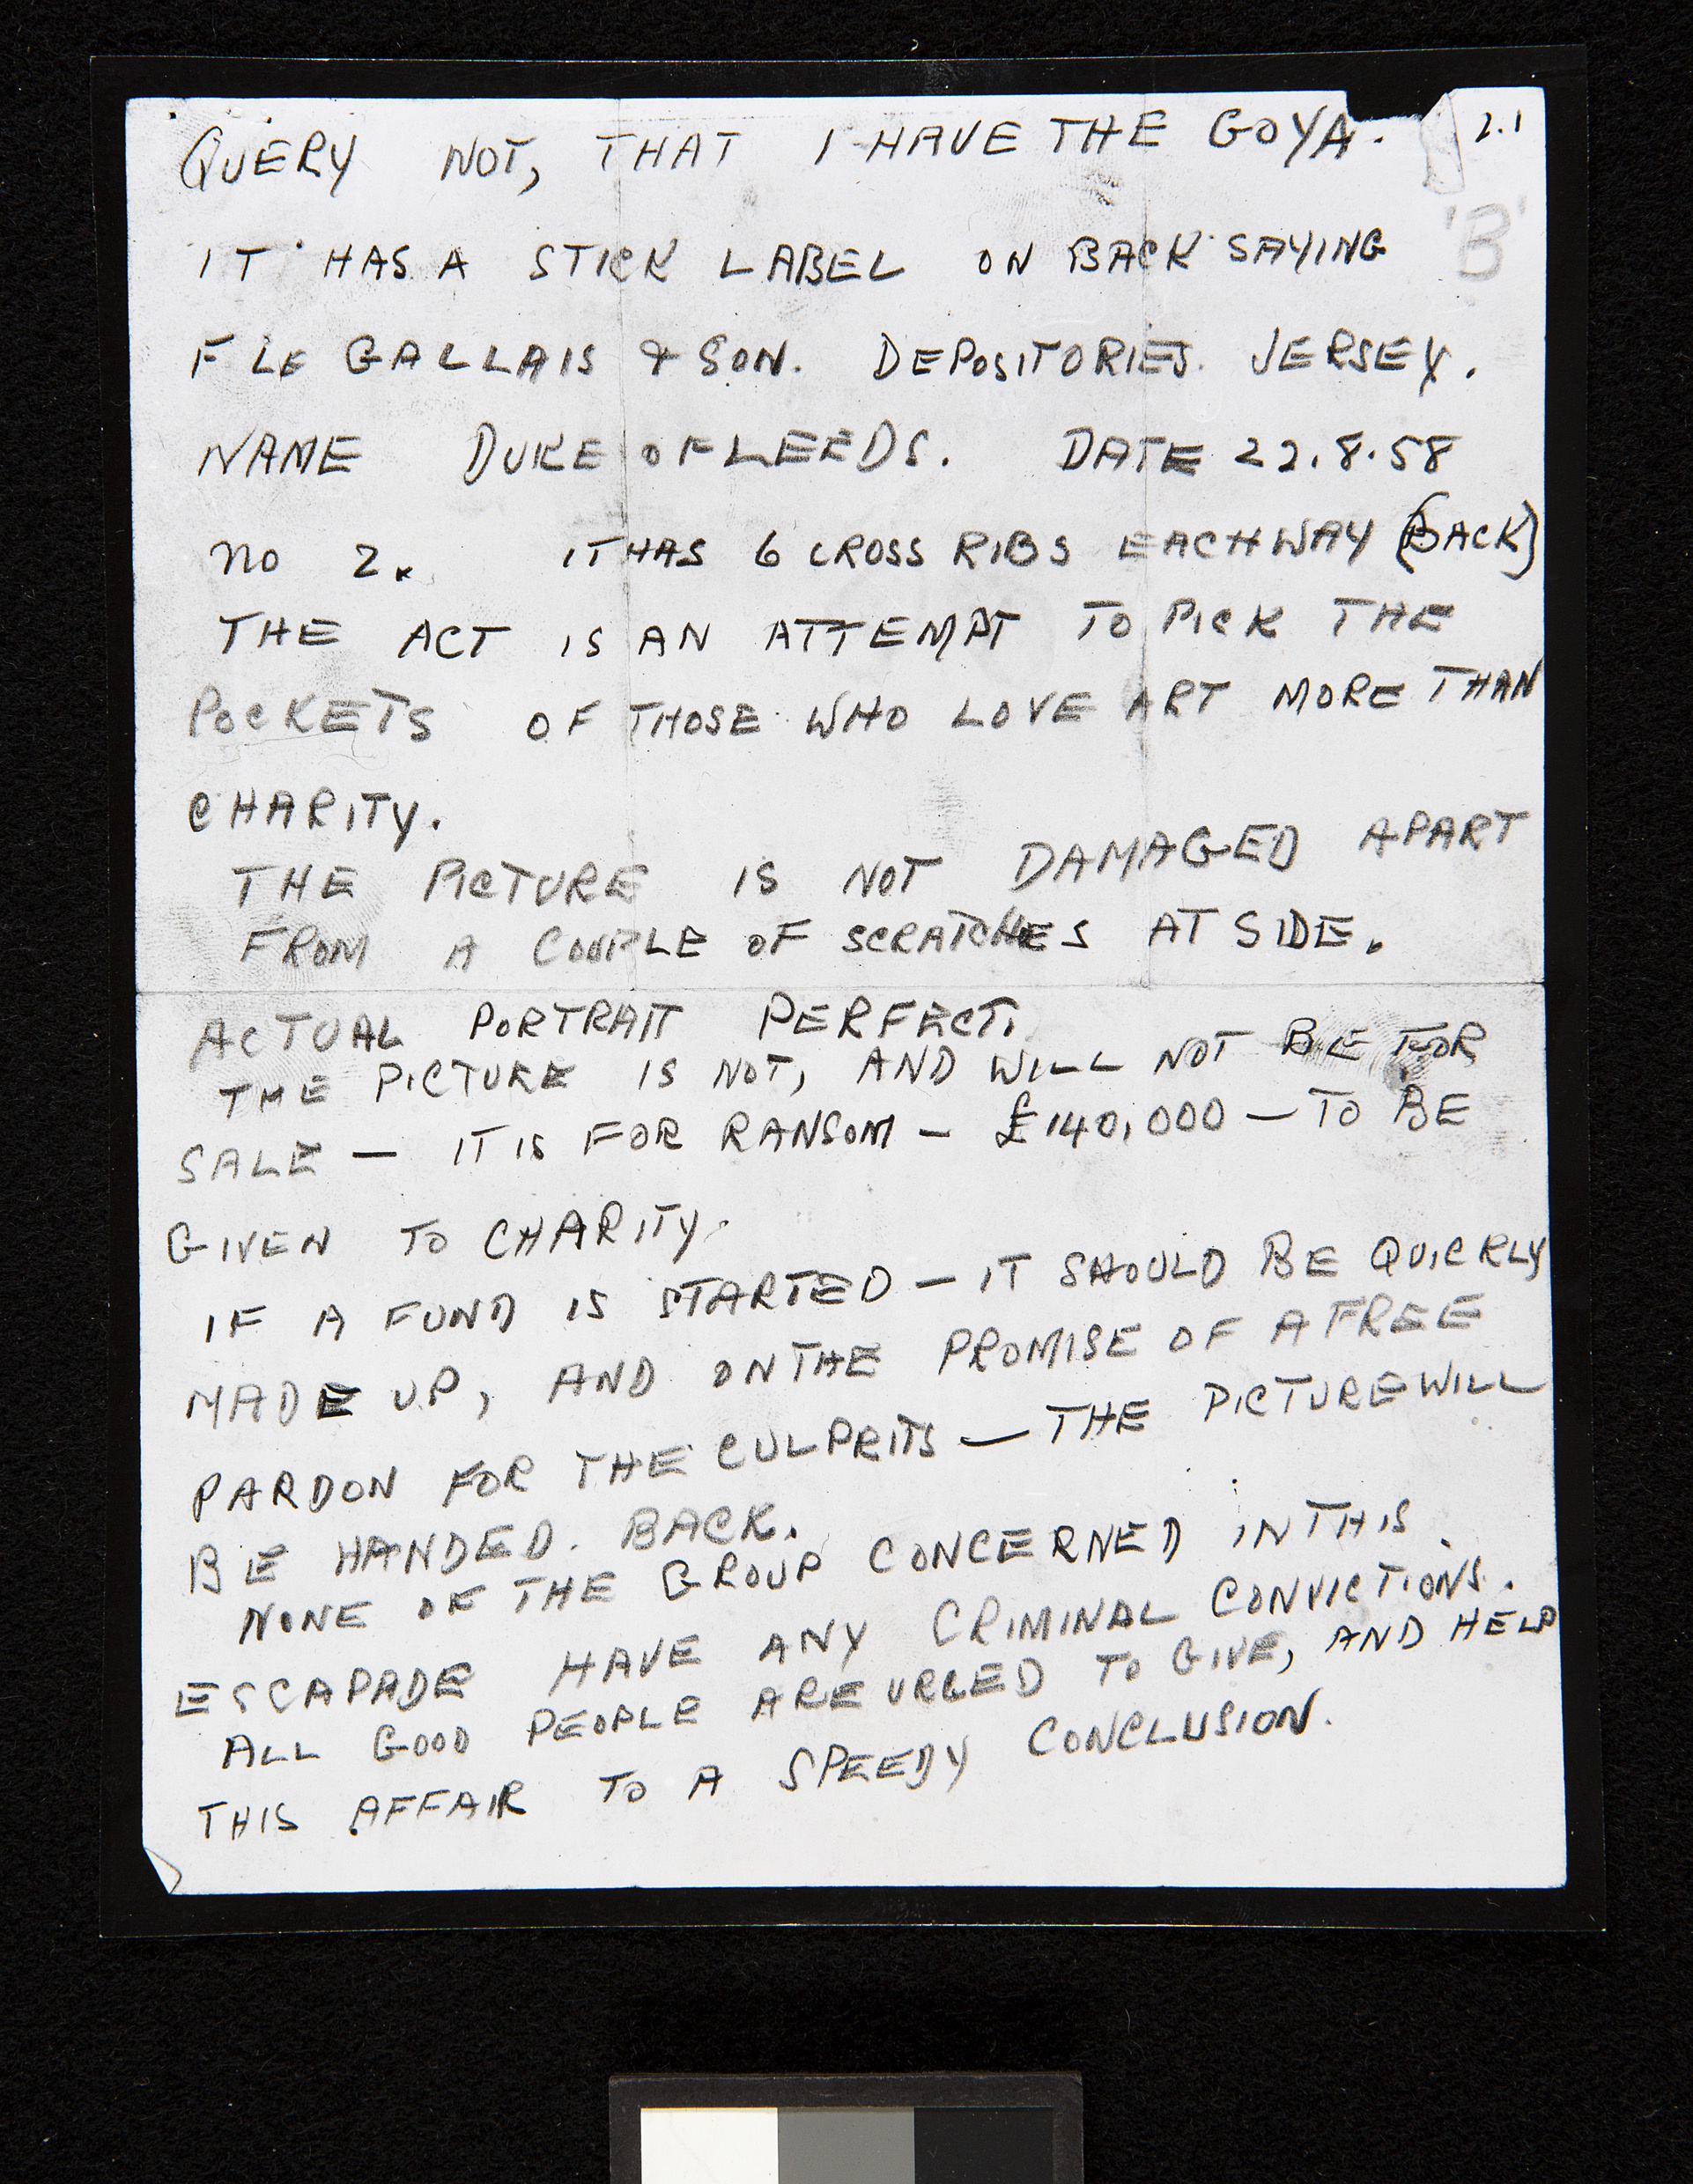 QUERY NOT, THAT I HAVE THE GOYA. 2.1
'B'
IT HAS A STICK LABEL ON BACK SAYING
F LE GALLAIS & SON. DEPOSITORIES. JERSEY.
NAME DUKE OF LEEDS. DATE 22.8.58
NO 2. IT HAS 6 CROSS RIBS EACH WAY (BACK)
THE ACT IS AN ATTEMPT TO PICK THE
POCKETS OF THOSE WHO LOVE ART MORE THAN
CHARITY.
THE PICTURE IS NOT DAMAGED APART
FROM A COUPLE OF SCRATCHES AT SIDE.
ACTUAL PORTRAIT PERFECT.
THE PICTURE IS NOT, AND WILL NOT BE FOR
SALE — IT IS FOR RANSOM — £140,000 — TO BE
GIVEN TO CHARITY.
IF A FUND IS STARTED — IT SHOULD BE QUICKLY
MADE UP, AND ON THE PROMISE OF A FREE
PARDON FOR THE CULPRITS — THE PICTURE WILL
BE HANDED. BACK.
NONE OF THE GROUP CONCERNED IN THIS
ESCAPADE HAVE ANY CRIMINAL CONVICTIONS.
ALL GOOD PEOPLE ARE URGED TO GIVE, AND HELP
THIS AFFAIR TO A SPEEDY CONCLUSION.